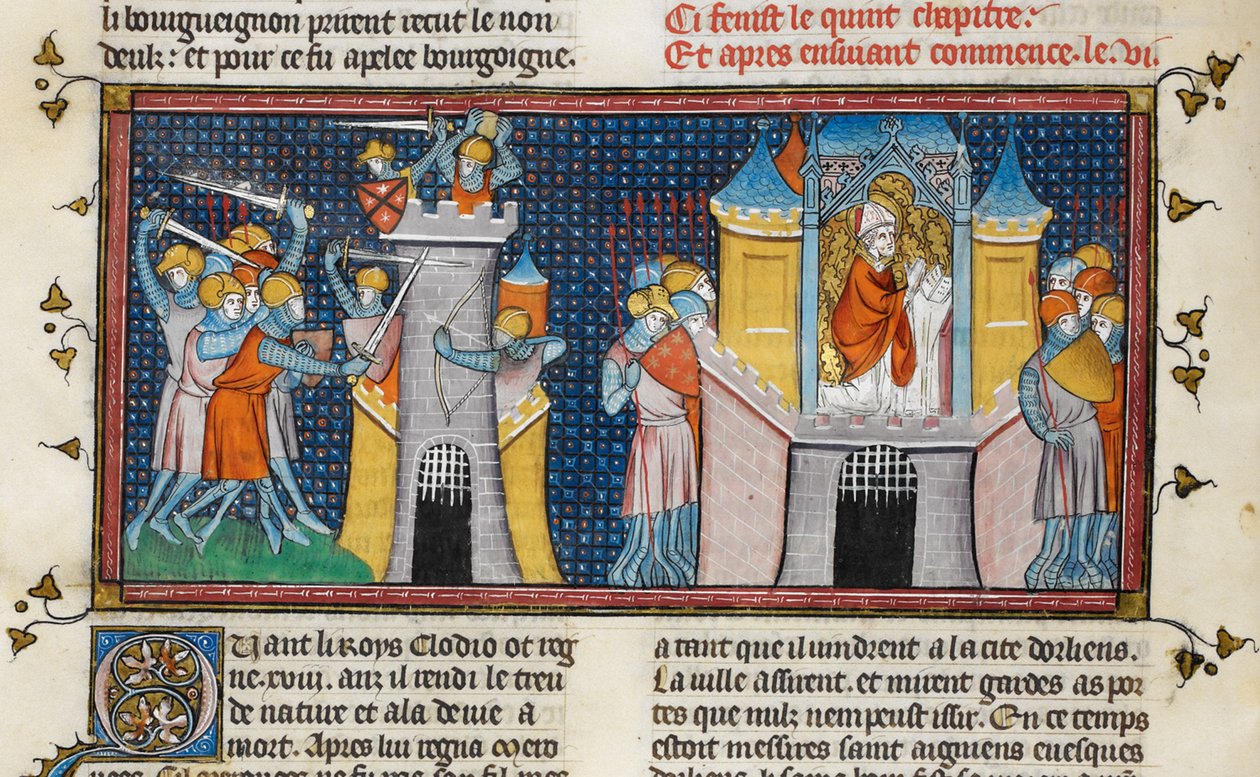 li bourgueignon prirent recut le non
deulz: et pour ce fu apelee bourgoigne.
Ci fenist le quint chapitre:
Et apres ensivant commence. le. vi.
Quant li Roys Clodio ot reg
ne. xviii. anz il rendi le treu
de nature et a la deuie a
mort. Apres lui regna Mero
a tant que il uindrent a la cite dorliens.
La uille assirent. et mirent gardes as por
tes que nulz nen peust issir. En ce temps
estoit messires saint aiguens euesques